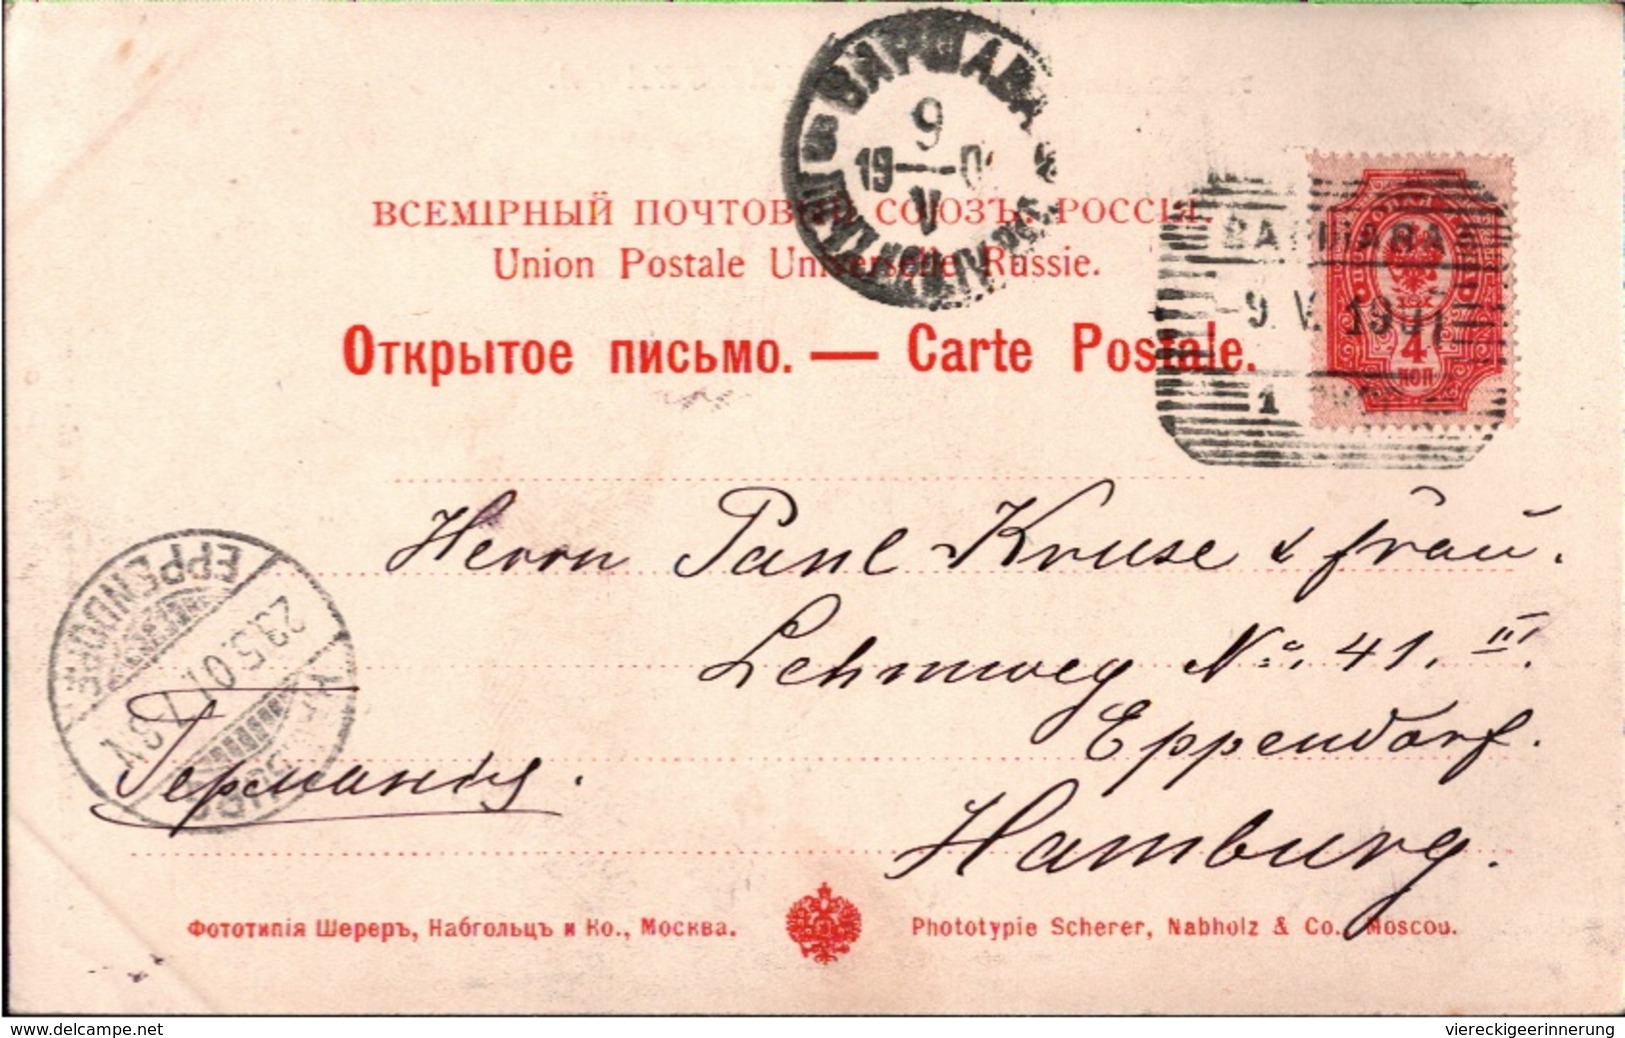 ВАРШАВА
9
19 — 0
V
ВСЕМІРНЫЙ ПОЧТОВЫЙ СОЮЗЪ. РОССІЯ.
Union Postale Universelle Russie.
Открытое письмо. — Carte Postale.
ВАРШАВА
-9. V. 1901
1
4
КОП
Herrn Paul Kruse & Frau.
Lehmweg No. 41. III.
Eppendorf.
Hamburg.
Германія.
EPPENDORF
23.5.01. 7-8V
HAMBURG
Фототипія Шереръ, Набгольцъ и Ко., Москва.
Phototypie Scherer, Nabholz & Co. Moscou.
www.delcampe.net
viereckigeerinnerung